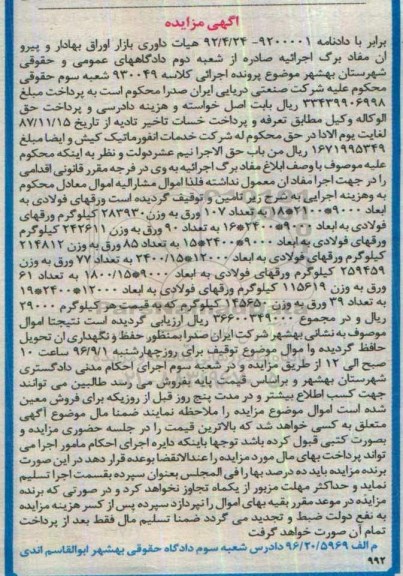 آگهی مزایده
برابر با دادنامه ۹۲۰۰۰۰۱- ۹۲/۴/۲۴ هیات داوری بازار اوراق بهادار و پیرو
ان مفاد برگ اجرائیه صادره از شعبه دوم دادگاههای عمومی و حقوقی
شهرستان بهشهر موضوع پرونده اجرائی کلاسه ۹۳۰۰۴۹ شعبه سوم حقوقی
محکوم علیه شرکت صنعتی دریایی ایران صدرا محکوم است به پرداخت مبلغ
۳۳۴۳۹۹۰۶۹۹۸ ریال بابت اصل خواسته و هزینه دادرسی و پرداخت حق
الوکاله وکیل مطابق تعرفه و پرداخت خسات تاخیر تادیه از تاریخ ۸۷/۱۱/۱۵
لغایت یوم الادا در حق محکوم له شرکت خدمات انفورماتیک کیش و ایضا مبلغ
۱۶۷۱۹۹۵۳۴۹ ریال من باب حق الاجرا نیم عشردولت و نظر به اینکه محکوم
علیه موصوف با وصف ابلاغ مفاد برگ اجرائیه به وی در فرجه مقرر قانونی اقدامی
را در جهت اجرا مفاد ان معمول نداشته فلذا اموال مشارالیه اموال معادل محکوم
به وهزینه اجرایی به شرح زیر تامین و توقیف گردیده است ورقهای فولادی به
ابعاد ۹۰۰۰*۲۱۰۰*۱۸ تعداد ۱۰۷ ورق به وزن ۲۸۳۹۳۰ کیلوگرم ورقهای
فولادی به ابعاد ۹۰۰۰*۲۴۰۰*۱۶ به تعداد ۹۰ ورق به وزن ۲۴۲۶۱۱ کیلوگرم
ورقهای فولادی به ابعاد ۹۰۰۰*۲۴۰۰*۱۵ به تعداد ۸۵ ورق به وزن ۲۱۴۸۱۲
کیلوگرم ورقهای فولادی به ابعاد ۱۲۰۰۰*۲۴۰۰/۱۵ به تعداد ۷۷ ورق به وزن
۲۵۹۴۵۹ کیلوگرم ورقهای فولادی به ابعاد ۹۰۰۰*۱۸۰۰/۱۵ به تعداد ۶۱
ورق به وزن ۱۱۵۶۱۹ کیلوگرم ورقهای فولادی به ابعاد ۱۲۰۰۰*۲۴۰۰*۹۹
به تعداد ۳۹ ورق به وزن ۱۴۵۶۵۰ کیلوگرم که به قیمت هر کیلوگرم ۲۹۰۰۰
ریال و در مجموع ۳۶۶۰۰۳۴۹۰۰۰ ریال ارزیابی گردیده است نتیجتا اموال
موصوف به نشانی بهشهر شرکت ایران صدرا بمنظور حفظ و نگهداری ان تحویل
حافظ گردیده وا موال موضوع توقیف برای روز چهارشنبه ۹۶/۹/۱ ساعت ۱۰
صبح الی ۱۲ از طریق مزایده و در شعبه سوم اجرای احکام مدنی دادگستری
شهرستان بهشهر و براساس قیمت پایه بفروش می رسد طالبین می توانند
جهت کسب اطلاع بیشتر و در مدت پنج روز قبل از روزیکه برای فروش معین
شده است اموال موضوع مزایده را ملاحظه نمایند ضمنا مال موضوع آگهی
متعلق به کسی خواهد شد که بالاترین قیمت را در جلسه حضوری مزایده و
بصورت کتبی قبول کرده باشد توجها باینکه دایره اجرای احکام مامور اجرا می
تواند پرداخت بهای مال مورد مزایده را عندالاقتضا بوعده قرار دهد در این صورت
برنده مزایده باید ده درصد بها را فی المجلس بعنوان سپرده بقسمت اجرا تسلیم
نماید و حداکثر مهلت مزبور از یکماه تجاوز نخواهد کرد و در صورتی که برنده
مزایده در موعد مقرر بقیه بهای اموال را نپردازد سپرده پس از کسر هزینه مزایده
به نفع دولت ضبط و تجدید می گردد ضمنا تسلیم مال فقط بعد از پرداخت
تمام آن صورت خواهد گرفت
م الف ۹۶/۲۰/۵۹۶۹ دادرس شعبه سوم دادگاه حقوقی بهشهر ابوالقاسم اندی
۹۹۲